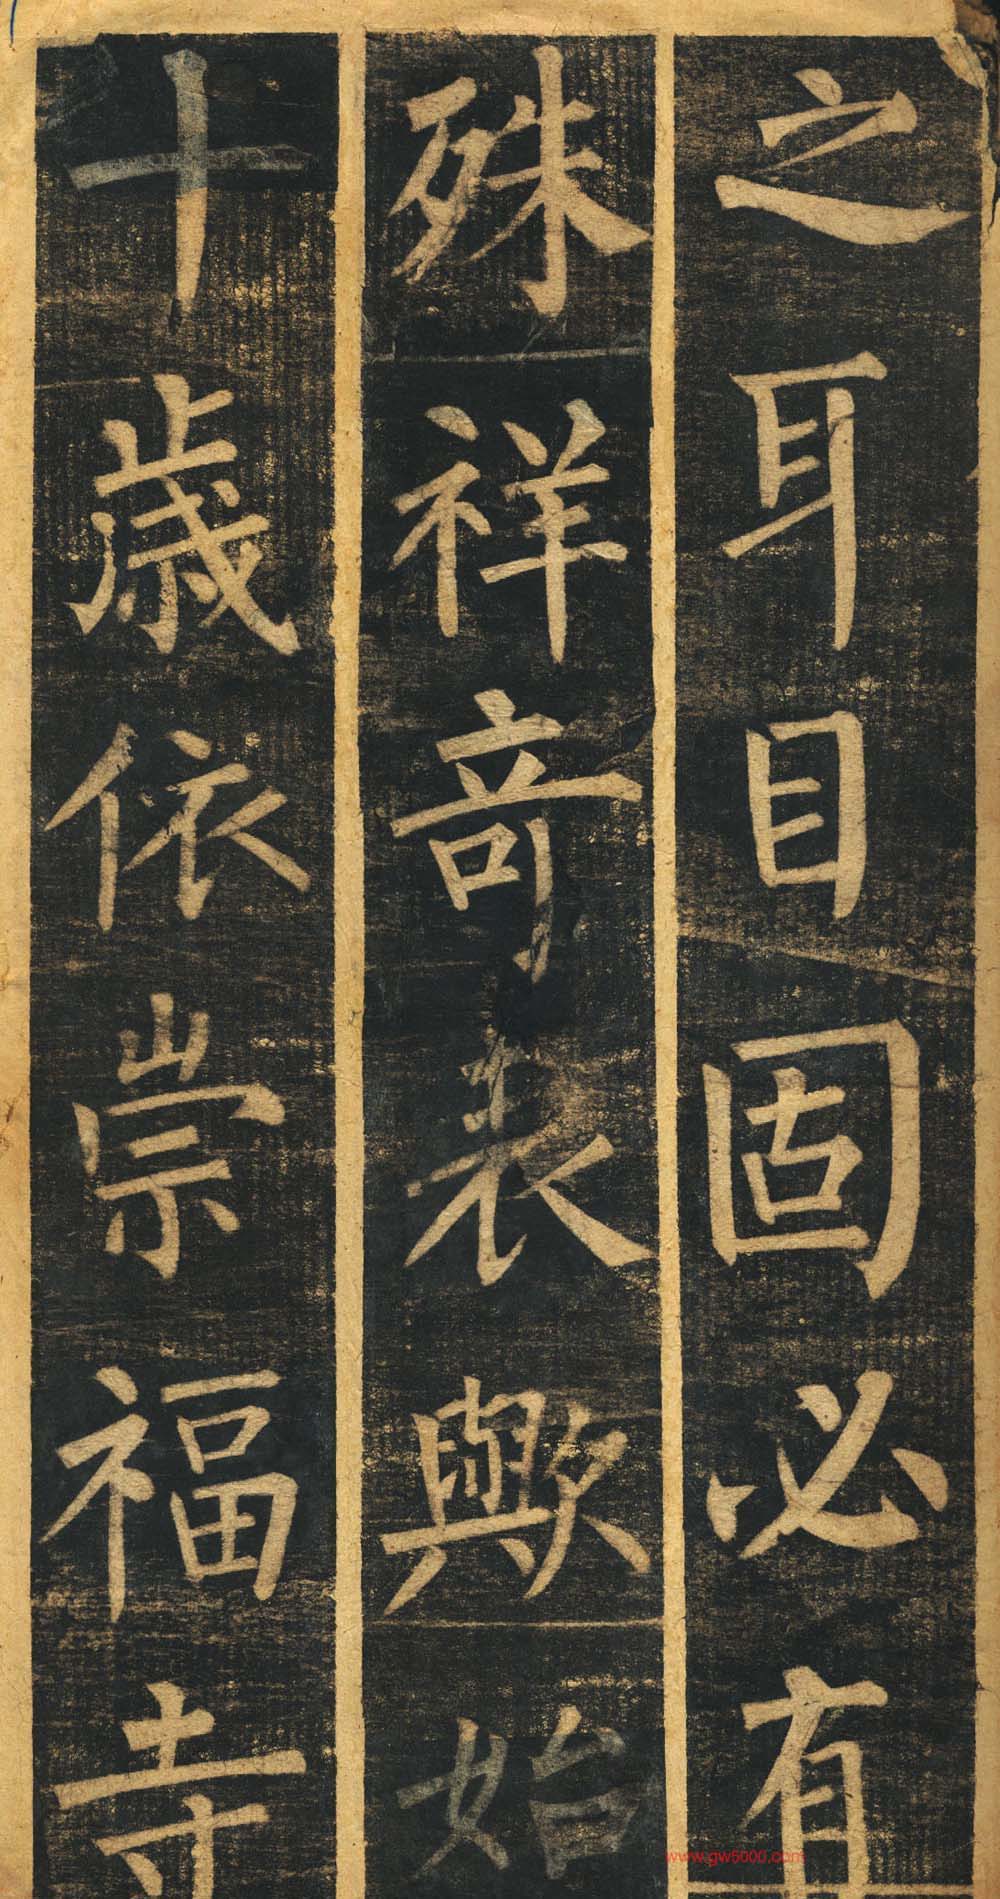 之耳目固必有
殊祥奇表歟始
十歲依崇福寺
www.gw5000.com